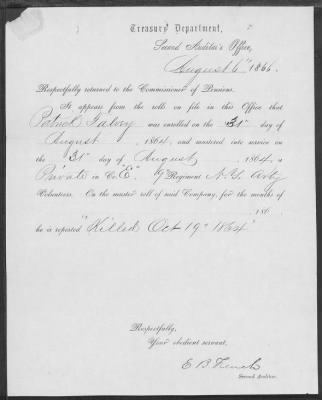 Treasury Department,
Second Auditor's Office,
August 6" 1866.
Respectfully returned to the Commissioner of Pensions.
It appears from the rolls on file in this Office that
Patrick was enrolled on the 31st day of
August, 1864, and mustered into service on
the 31st day of August, 1864, a
Private in Co. "E" 9 Regiment N.Y. Arty
Volunteers. On the muster roll of said Company, for the months of
, 186
he is reported "Killed Oct 19" 1864"
Respectfully,
Your obedient servant,
E B French
Second Auditor.